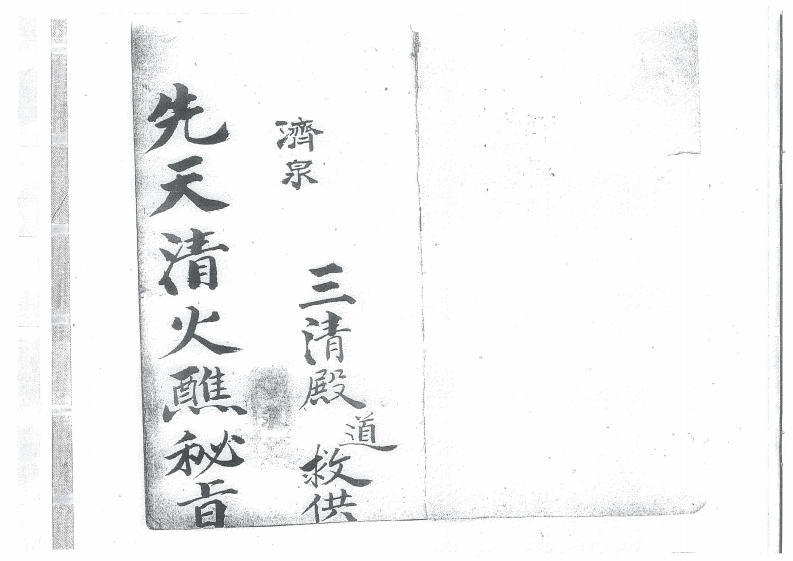 三清殿道教供
濟泉
先天清火醮秘旨